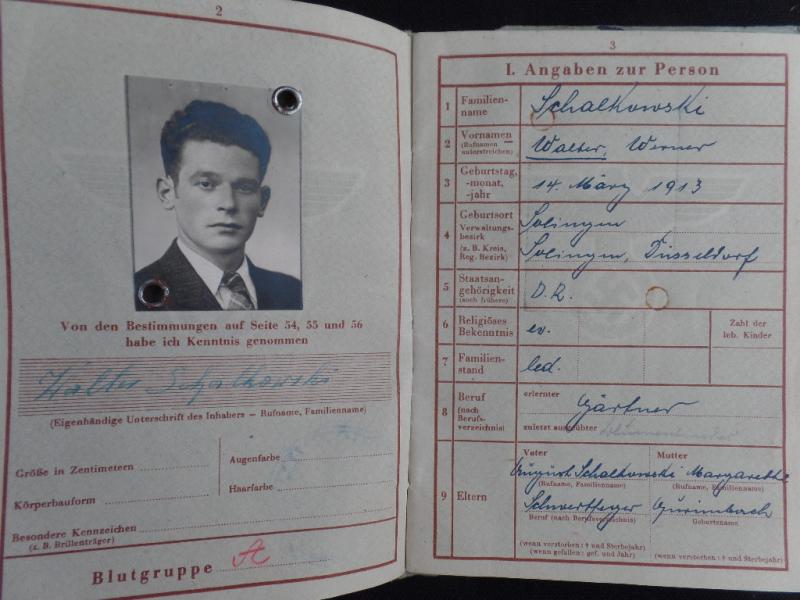 2
Von den Bestimmungen auf Seite 54, 55 und 56
habe ich Kenntnis genommen
Walter Schalkowski
(Eigenhändige Unterschrift des Inhabers – Rufname, Familienname)
Größe in Zentimetern
Augenfarbe
Körperbauform
Haarfarbe
Besondere Kennzeichen
(z. B. Brillenträger)
Blutgruppe A
3
I. Angaben zur Person
1 Familien-
name
Schalkowski
2 Vornamen
(Rufnamen
unterstreichen)
Walter, Werner
3 Geburtstag,
-monat,
-jahr
14. März 1913
4 Geburtsort
Verwaltungs-
bezirk
(z. B. Kreis,
Reg. Bezirk)
Solingen
Solingen, Düsseldorf
5 Staatsan-
gehörigkeit
(auch frühere)
D.R.
6 Religiöses
Bekenntnis
ev.
Zahl der
leb. Kinder
7 Familien-
stand
led.
8 Beruf
(nach
Berufs-
verzeichnis)
erlernter
Gärtner
zuletzt ausgeübter
9 Eltern
Vater
August Schalkowski
(Rufname, Familienname)
Beruf (nach Berufsverzeichnis)
(wenn verstorben: † und Sterbejahr)
(wenn gefallen: gef. und Jahr)
Mutter
Margarethe
(Rufname, Familienname)
Geburtsname
(wenn verstorben: † und Sterbejahr)